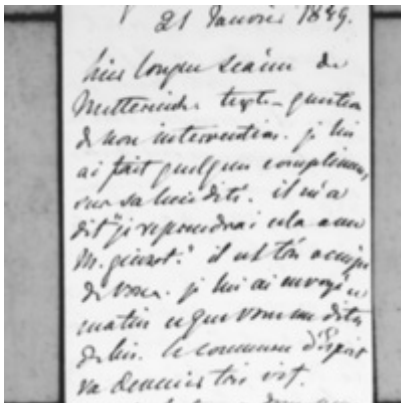 21 Janvier 1849.
hier longue séance de
Metternich. texte question
de non intervention. je lui
ai fait quelques complimens
sur sa lucidité. il m'a
dit "je repondrai cela avec
M. guizot." il est très occupé
de vous. je lui ai envoyé ce
matin ce que vous me dites
de lui. le commerce d'esprit
va devenir très vif.